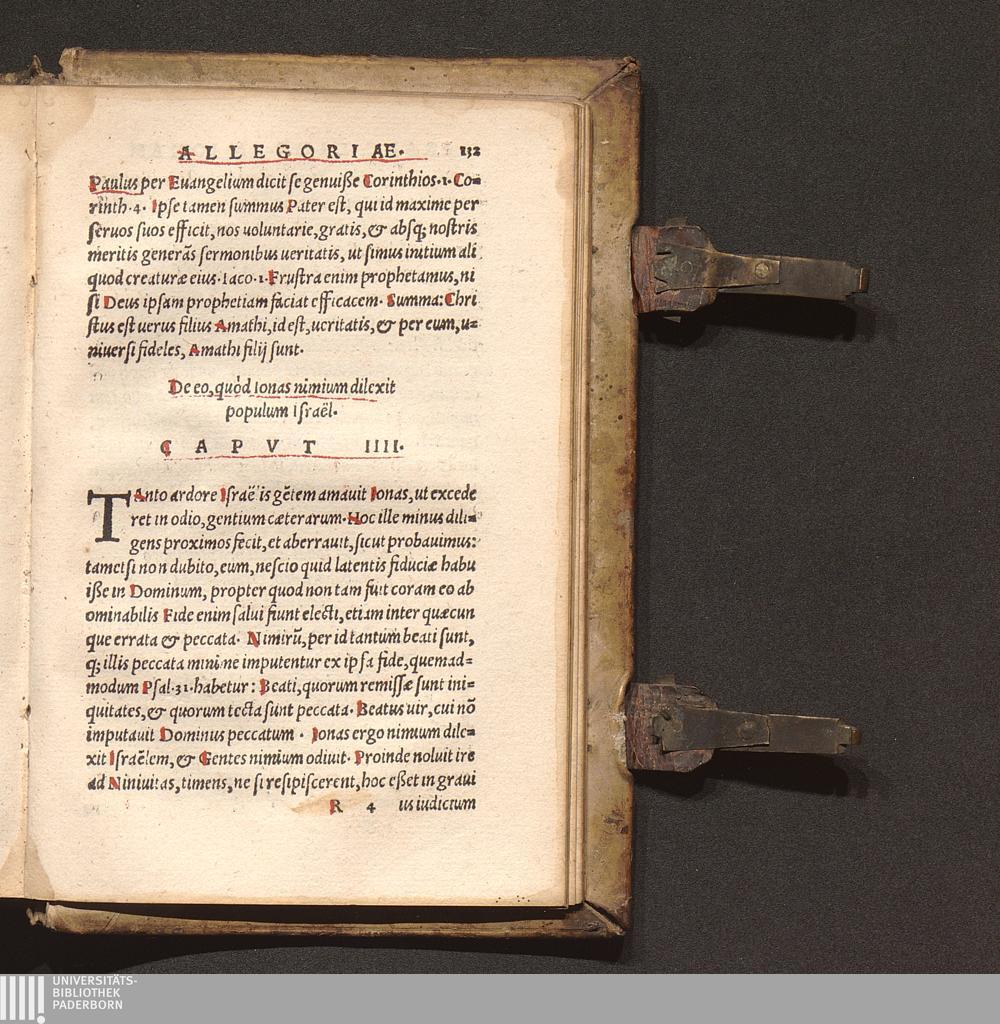 ALLEGORIAE. 132
Paulus per Euangelium dicit se genuiße Corinthios. 1. Co=
rinth. 4. Ipse tamen summus Pater est, qui id maxime per
seruos suos efficit, nos voluntarie, gratis, & absq; nostris
meritis generãs sermonibus ueritatis, ut simus initium ali
quod creaturæ eius. Iaco. 1. Frustra enim prophetamus, ni
si Deus ipsam prophetiam faciat efficacem. Summa: Chri
stus est uerus filius Amathi, id est, ueritatis, & per eum, u=
niuersi fideles, Amathi filij sunt.
De eo, quòd Ionas nimium dilexit
populum Israël.
CAPVT IIII.
TAnto ardore Israëlis gẽtem amauit Ionas, ut excede
ret in odio, gentium cæterarum. Hoc ille minus dili=
gens proximos fecit, et aberrauit, sicut probauimus:
tametsi non dubito, eum, nescio quid latentis fiduciæ habu
iße in Dominum, propter quod non tam fuit coram eo ab
ominabilis Fide enim salui fiunt electi, etiam inter quæcun
que errata & peccata. Nimirũ, per id tantum beati sunt,
q; illis peccata minime imputentur ex ipsa fide, quemad=
modum Psal. 31. habetur: Beati, quorum remissæ sunt ini=
quitates, & quorum tecta sunt peccata. Beatus uir, cui nõ
imputauit Dominus peccatum. Ionas ergo nimium dile=
xit Israëlem, & Gentes nimium odiuit. Proinde noluit ire
ad Niniuitas, timens, ne si resipiscerent, hoc eßet in graui
R 4 us iudicium
UNIVERSITÄTS-
BIBLIOTHEK
PADERBORN